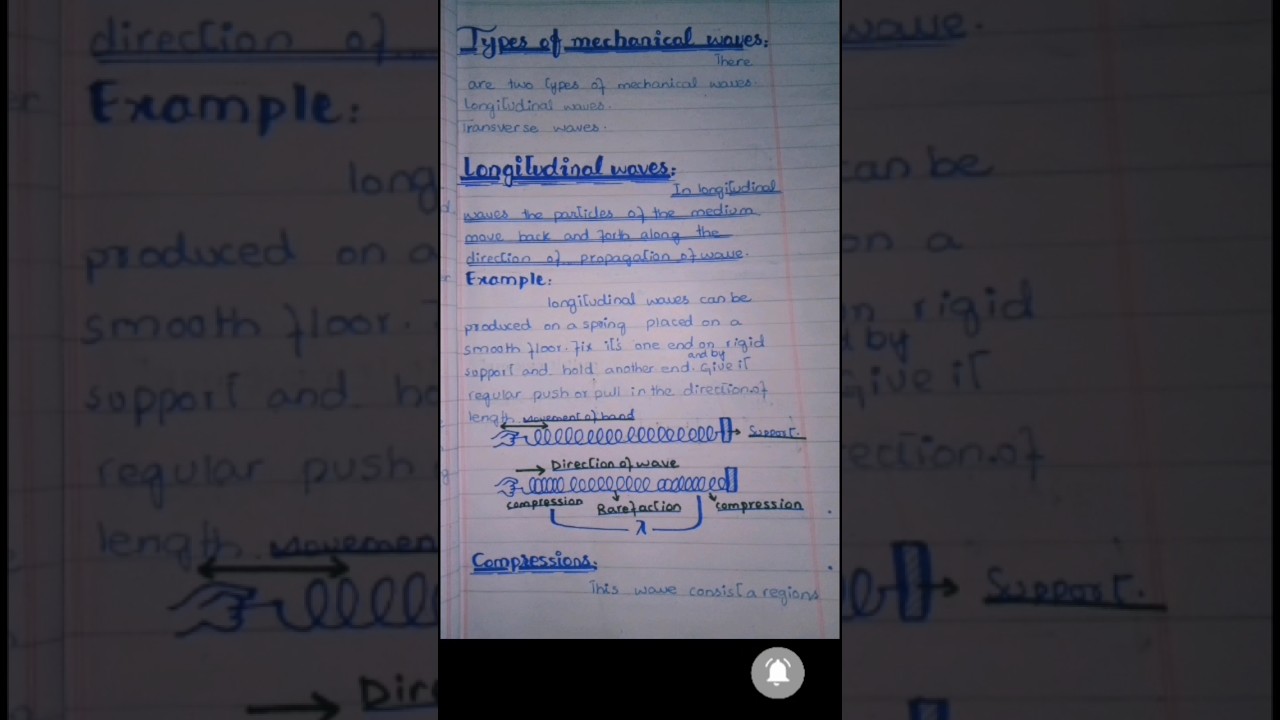 Types of mechanical waves:
There
are two types of mechanical waves.
Longitudinal waves.
Transverse waves.
Longitudinal waves:
In longitudinal
waves the particles of the medium
move back and forth along the
direction of propagation of wave.
Example:
longitudinal waves can be
produced on a spring placed on a
smooth floor. Fix it's one end on rigid
support and hold another end. and by Give it
regular push or pull in the direction.of
length. Movement of hand
Support.
Direction of wave
compression Rarefaction compression
λ
Compressions.
This wave consist a regions